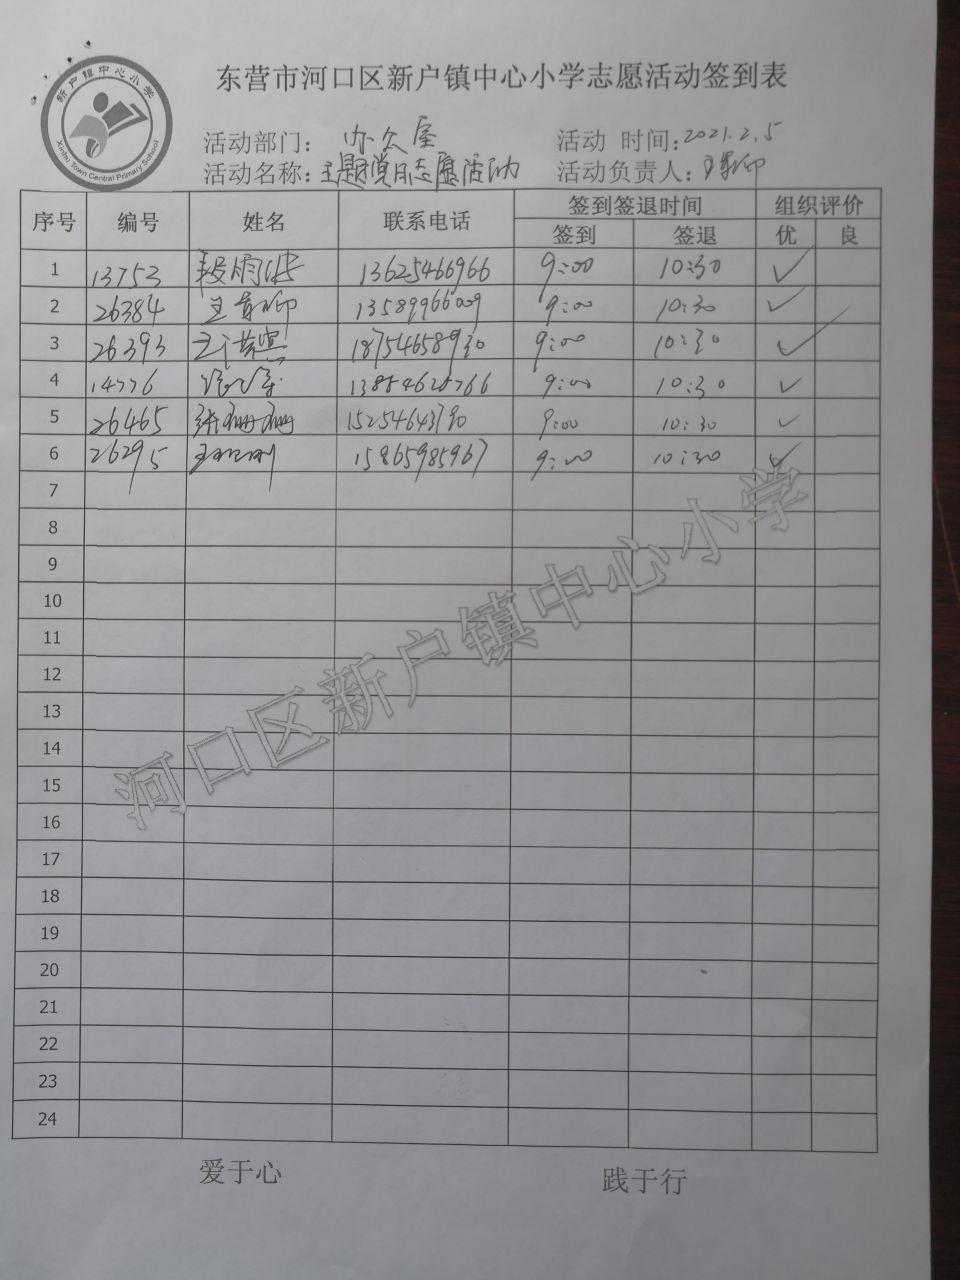 新户镇中心小学
Xinhu Town Central Primary School
东营市河口区新户镇中心小学志愿活动签到表
活动部门： 办公室 活动 时间：2021.2.5
活动名称：主题党日志愿活动 活动负责人：王
序号 编号 姓名 联系电话 签到签退时间 组织评价
签到 签退 优 良
1 13753 段雨 13625466966 9:00 10:30 ✓
2 26384 王 13589966009 9:00 10:30 ✓
3 26393 王 18754658930 9:00 10:30 ✓
4 14776 9:00 10:30 ✓
5 26465 张珊珊 15254643790 9:00 10:30 ✓
6 26295 王 15865985967 9:00 10:30 ✓
7
8
9
10
11
12
13
14
15
16
17
18
19
20
21
22
23
24
河口区新户镇中心小学
爱于心 践于行